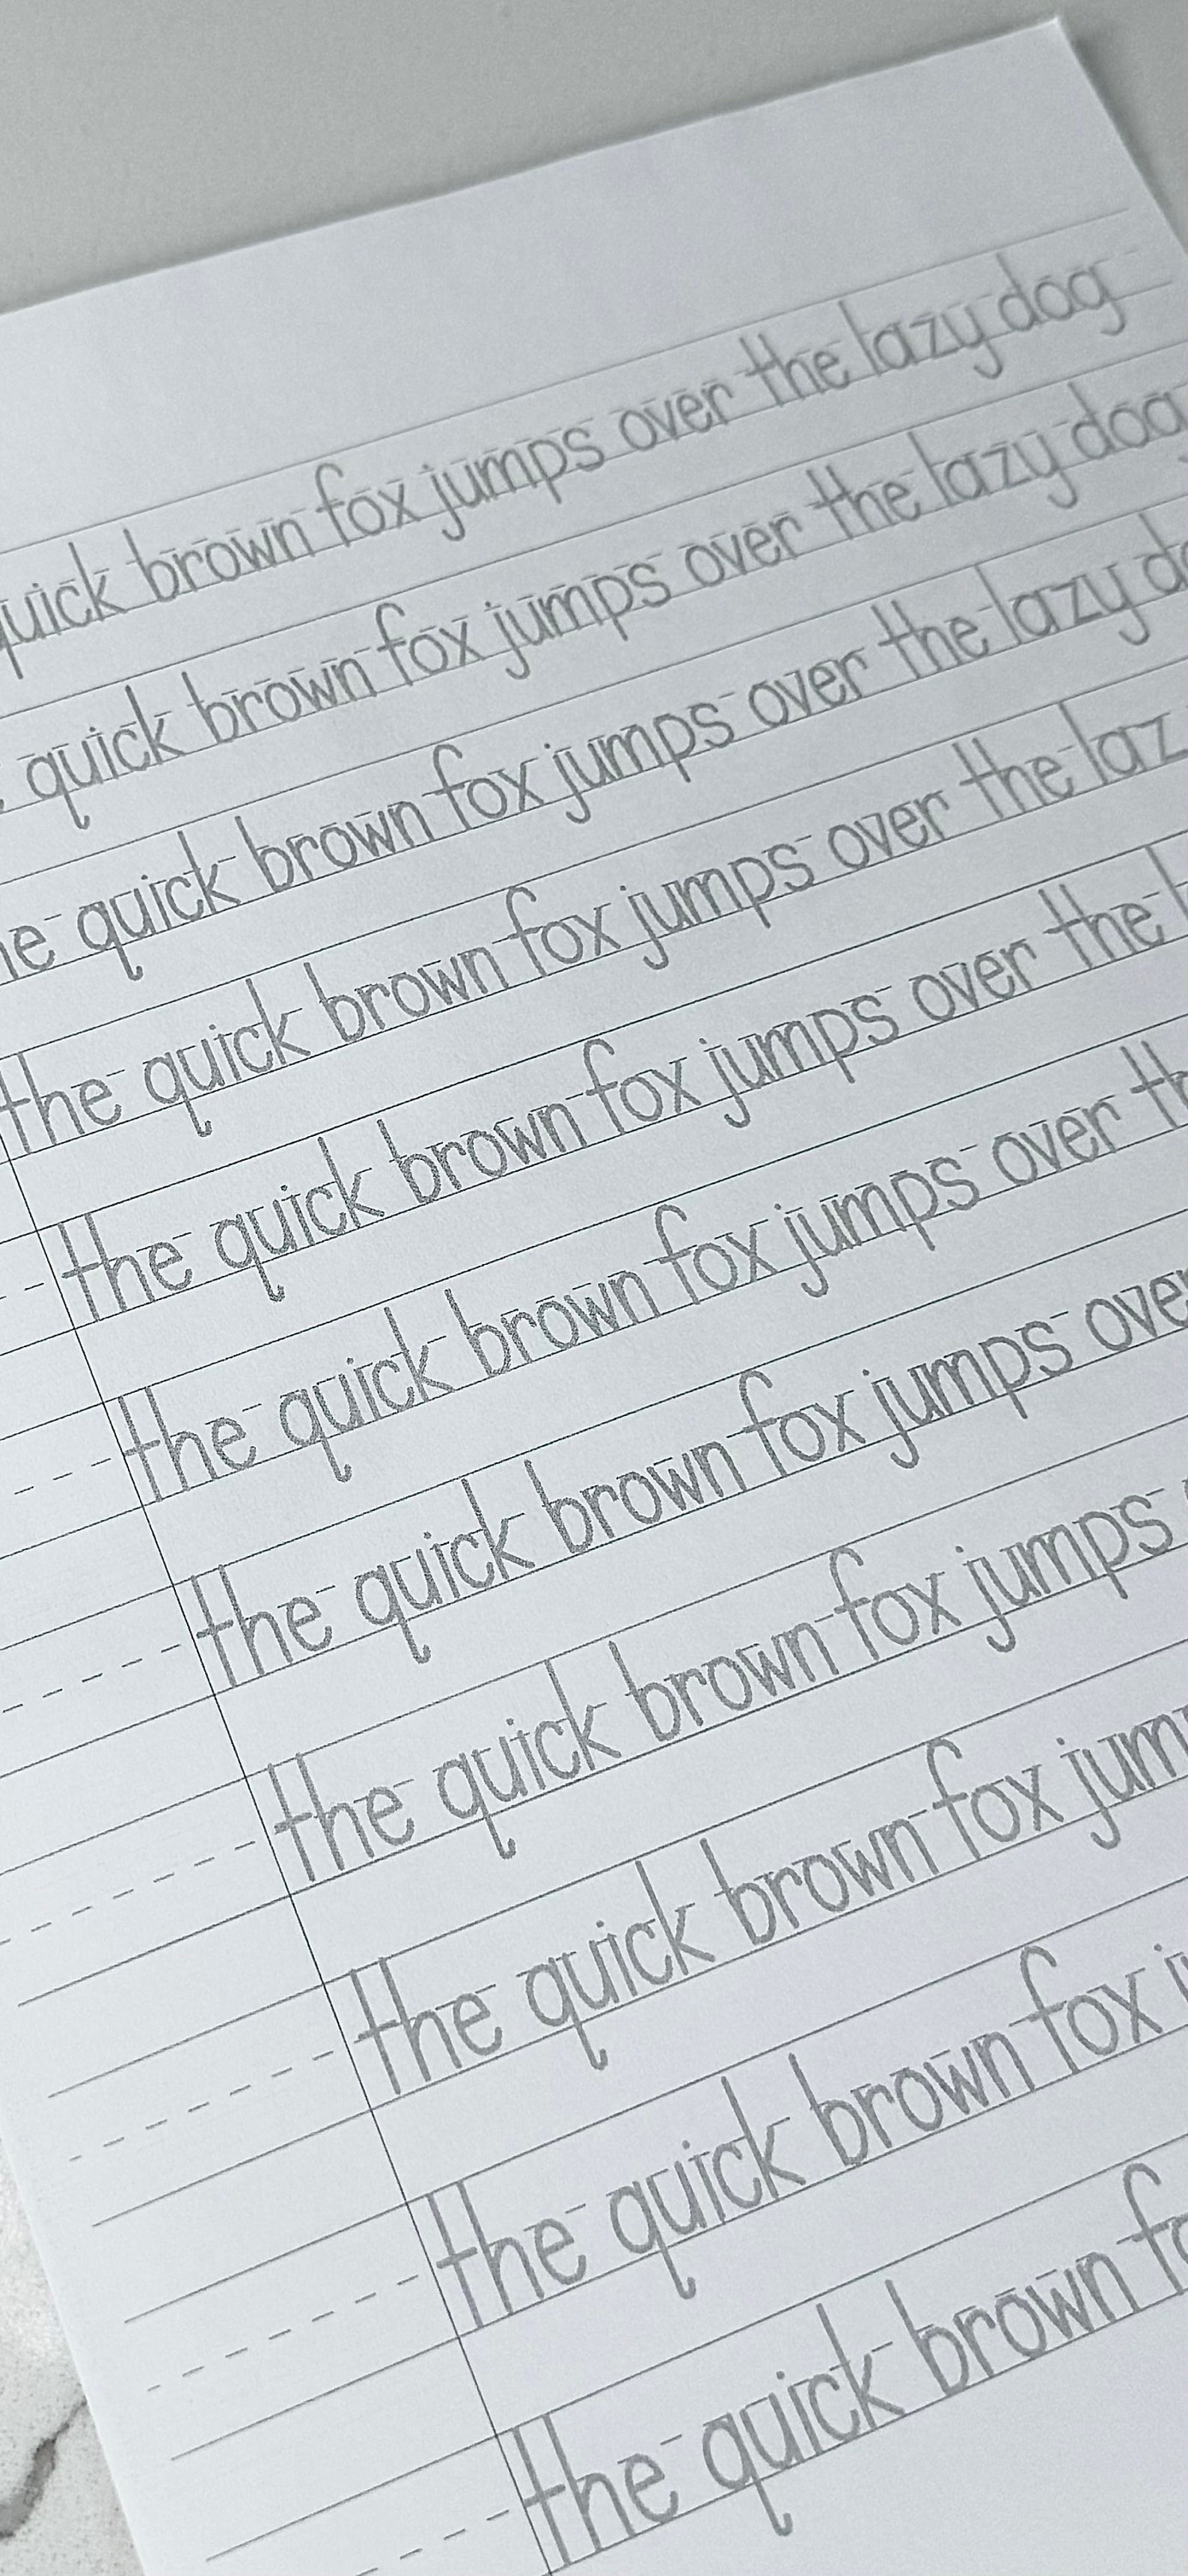 quick brown fox jumps over the lazy dog
quick brown fox jumps over the lazy dog
he quick brown fox jumps over the lazy do
the quick brown fox jumps over the laz
the quick brown fox jumps over the l
the quick brown fox jumps over th
the quick brown fox jumps over
the quick brown fox jumps
the quick brown fox jum
the quick brown fox j
the quick brown fo